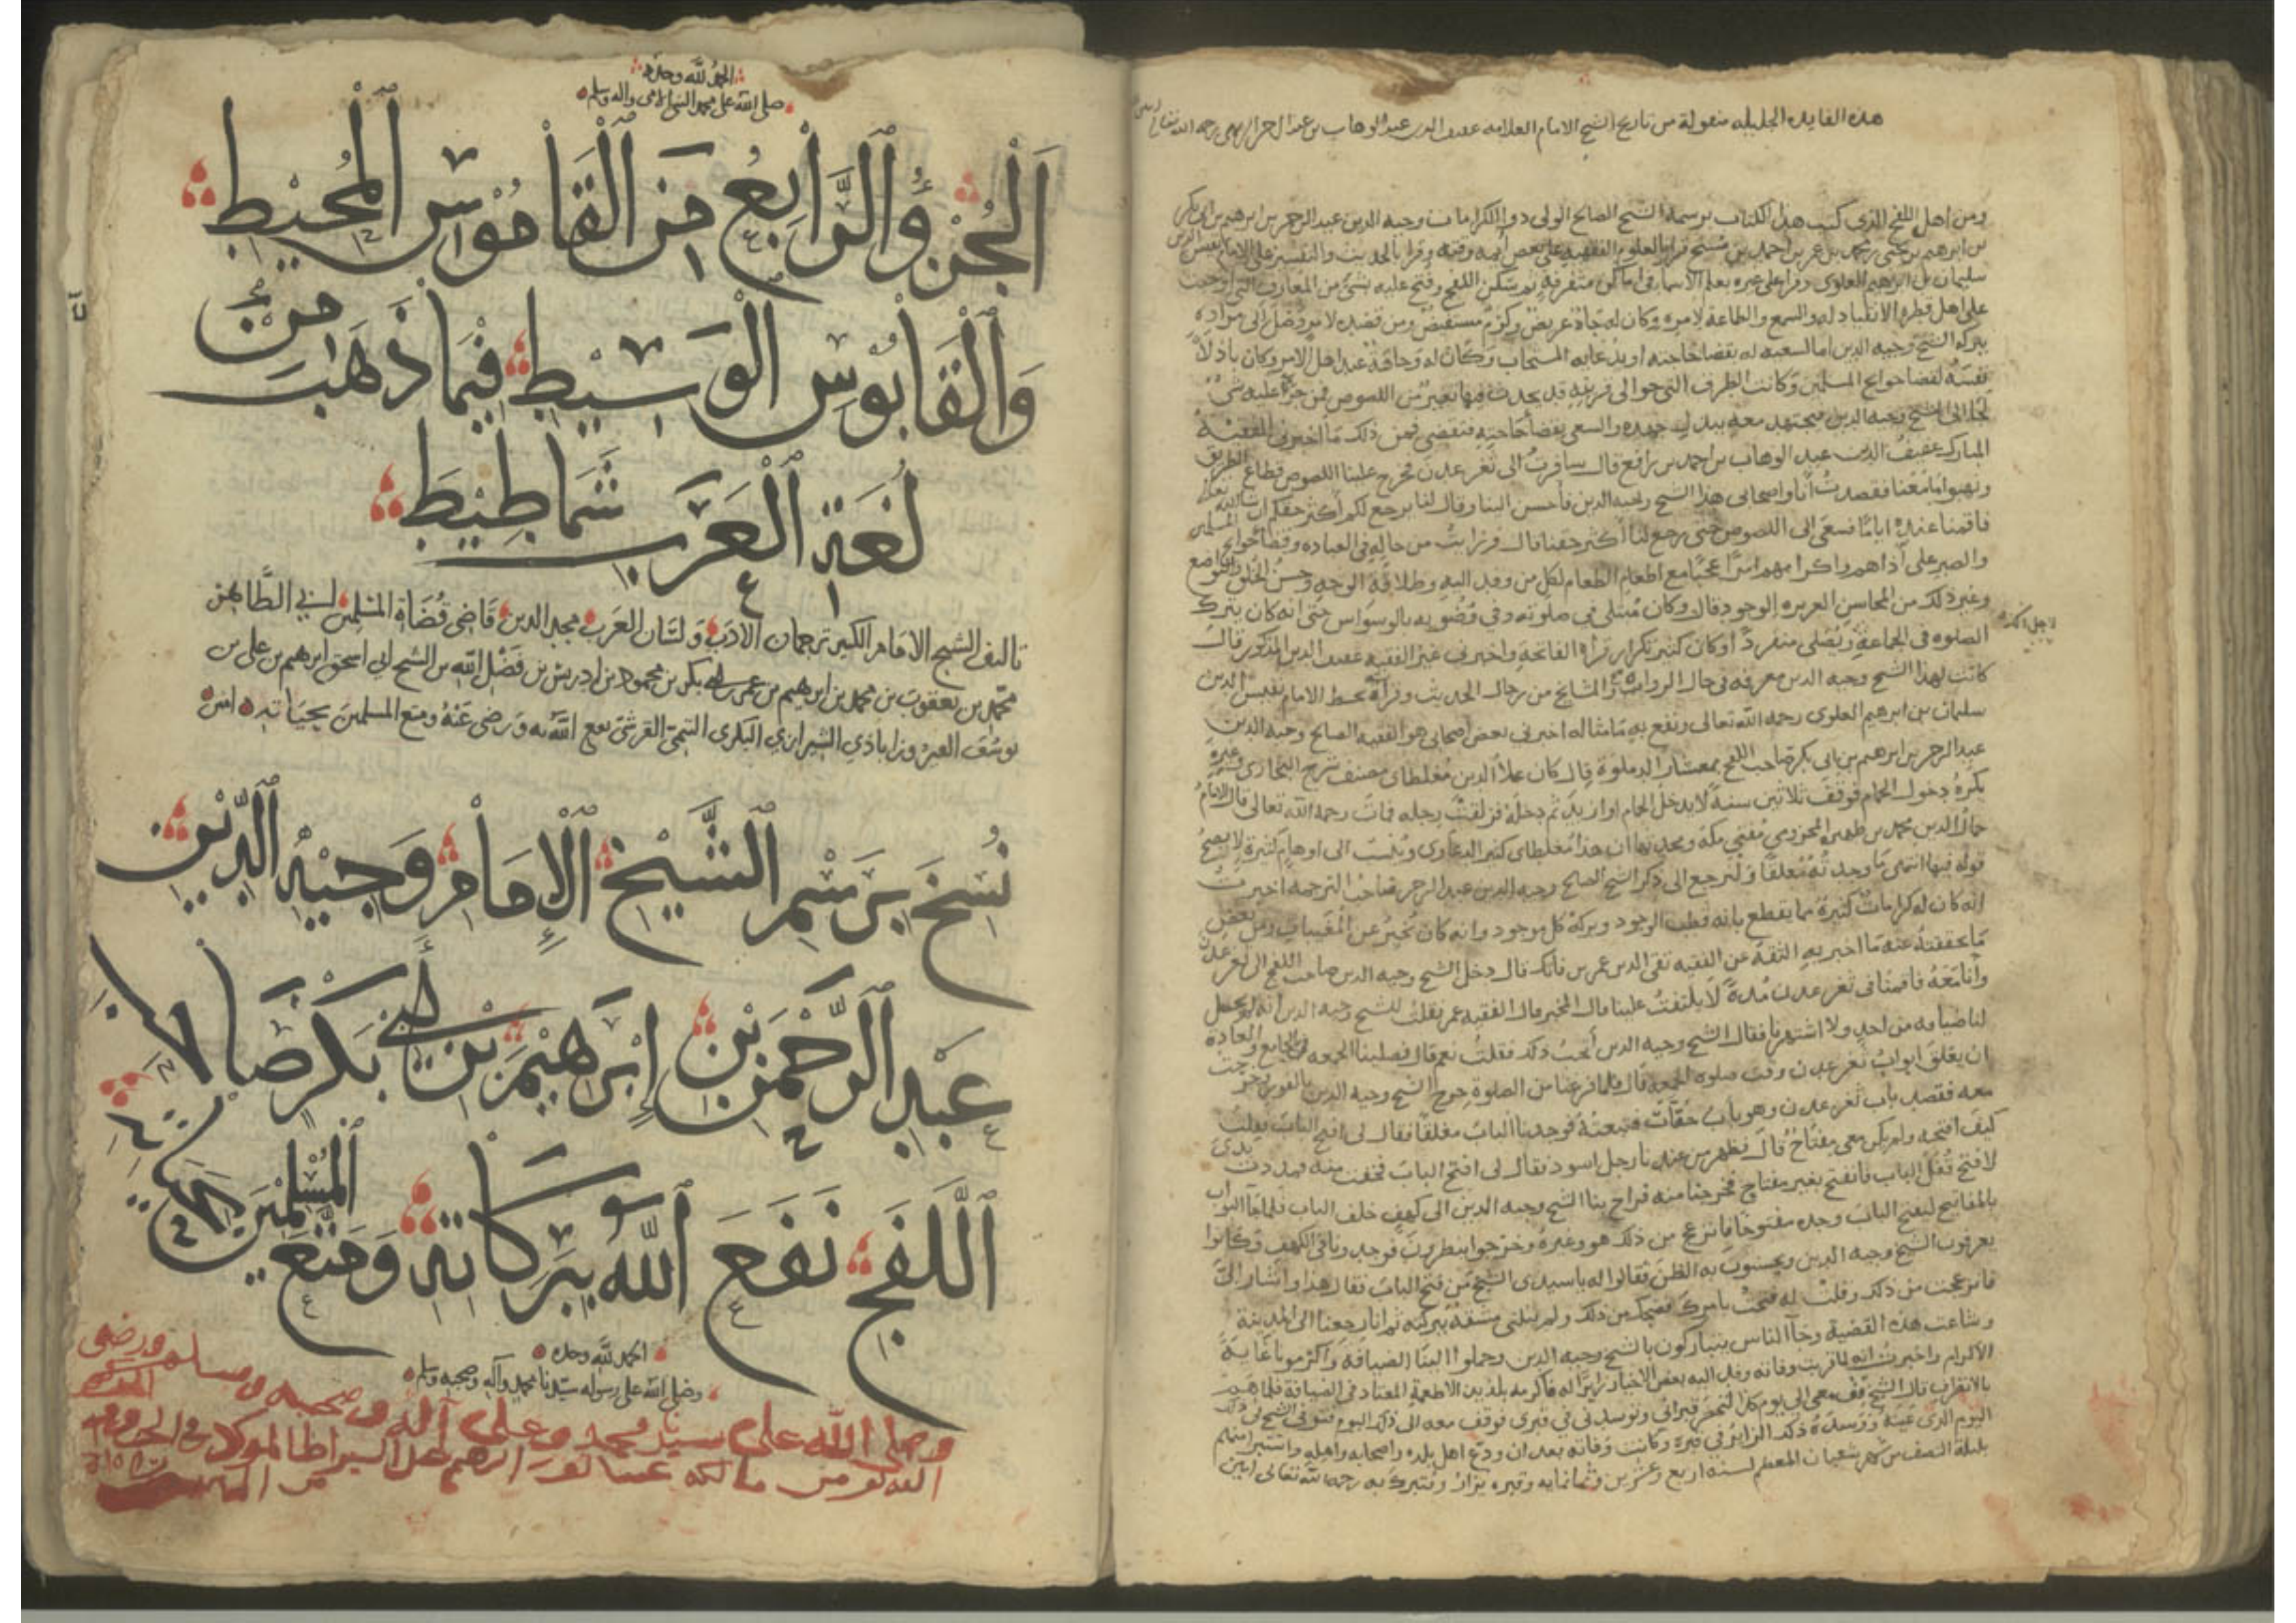 هذه الفايده الجليله منقولة من تاريخ الشيخ الامام العلامه عفيف الدين عبد الوهاب بن عبد الرحمن البريهي رحمه الله تعالى
ومن اهل اللفج الذي كتب هذا الكتاب برسمه الشيخ الصالح الولي ذو الكرامات وجيه الدين عبد الرحمن بن ابرهيم بن ابي بكر
بن ابرهيم بن يحيى بن محمد بن عمر بن احمد بن قرا بالعلوم الفقهيه على بعض ايمه وقته وقرا بالحديث والتفسير على الامام نفيس الدين
سليمان بن ابرهيم العلوي وقرا على غيره بعلم الاسما في اماكن متفرقة ثم سكن اللفج وفتح عليه بشي من المعارف التي اوجبت
على اهل قطره الانقياد له والسمع والطاعة لامره وكان له جاه عريض وكرم مستفيض ومن قصده لامر وصل الى مراده
ببركة الشيخ وجيه الدين اما لسعيه له بقضا حاجته او بدعايه المستجاب وكان له وجاهة عند اهل الامر وكان باذلا
نفسه لقضا حوايج المسلمين وكانت الطرق التي حوالى قريته قد يحدث فيها تغيير من اللصوص فمن جرى عليه شي
لجا الى الشيخ وجيه الدين فيجتهد معه ببذل جهده والسعي بقضا حاجته فتقضى فمن ذلك ما اخبرني الفقيه
المبارك عفيف الدين عبد الوهاب بن احمد بن رافع قال سافرت الى ثغر عدن فخرج علينا اللصوص قطاع الطريق
ونهبوا ما معنا فقصدت انا واصحابي هذا الشيخ وجيه الدين فاحسن الينا وقال لنا يرجع لكم اكثر حقكم ان شا الله تعالى
فاقمنا عنده اياما فسعى الى اللصوص حتى رجع لنا اكثر حقنا قال فرايت من حاله في العباده وقضا حوايج المسلمين
والصبر على اذاهم واكرامهم امرا عجيبا مع اطعام الطعام لكل من وفد اليه وطلاقة الوجه وحسن الخلق والتواضع
وغير ذلك من المحاسن العزيزه الوجود قال وكان مبتلى في صلوته وفي وضوبه بالوسواس حتى انه كان يترك
الصلوه في الجماعة ويصلي منفردا وكان كثير تكرار قراة الفاتحة واخبرني غير الفقيه عفيف الدين المذكور قال
كانت لهذا الشيخ وجيه الدين معرفه في حال الرواة والمشايخ من رجال الحديث وقراة بخط الامام نفيس الدين
سليمان بن ابرهيم العلوي رحمه الله تعالى ونفع به ما مثاله اخبرني بعض اصحابي هو الفقيه الصالح وجيه الدين
عبد الرحمن بن ابرهيم بن ابي بكر صاحب اللفج بمعشار الدملوة قال كان علاء الدين مغلطاي مصنف شرح البخاري وغيره
يكره دخول الحمام فوقف ثلاثين سنة لا يدخل الحمام او ازيد ثم دخله فزلقت رجله فمات رحمه الله تعالى قال الامام
جمال الدين محمد بن ظهيره المخزومي مفتي مكة ومحدثها ان هذا مغلطاي كثير الدعاوي وينسب الى اوهام كثيرة لا يصح
قوله فيها انتهى ما وجدته معلقا ولنرجع الى ذكر الشيخ الصالح وجيه الدين عبد الرحمن صاحب الترجمه اخبرت
انه كان له كرامات كثيرة مما يقطع بانه قطب الوجود وبركة كل موجود وانه كان يخبر عن المغيبات ومن بعض
ما تحققته عنه ما اخبر به الثقة عن الفقيه تقي الدين عمر بن قال دخل الشيخ وجيه الدين صاحب اللفج الى ثغر عدن
وانا معه فاقمنا في ثغر عدن مدة لا يلتفت علينا قال المخبر قال الفقيه عمر فقلت للشيخ وجيه الدين انه لم يحصل
لنا ضيافه من احد ولا اشتهرنا فقال الشيخ وجيه الدين اتحب ذلك فقلت نعم قال فصلينا الجمعه في الجامع والعادة
ان يغلق ابواب ثغر عدن وقت صلوه الجمعه قال فلما فرغنا من الصلوة خرج الشيخ وجيه الدين بالفور وخرجت
معه فقصد باب ثغر عدن وهو باب حقات فتبعته فوجدنا الباب مغلقا فقال لي افتح الباب فقلت
كيف افتحه ولم يكن معي مفتاح قال فظهر من عندنا رجل اسود فقال لي افتح الباب فخفت منه فمددت يدي
لافتح قفل الباب فانفتح بغير مفتاح فخرجنا منه فراح بنا الشيخ وجيه الدين الى كهف خلف الباب فلما جا البواب
بالمفاتيح ليفتح الباب وجده مفتوحا فانزعج من ذلك هو وغيره وخرجوا ينظرون فوجدونا في الكهف وكانوا
يعرفون الشيخ وجيه الدين ويحسنون به الظن فقالوا له يا سيدي الشيخ من فتح الباب فقال هذا واشار الي
فانزعجت من ذلك وقلت له فتحت بامرك فضحك من ذلك ولم ينلني مشقة ببركته ثم انا رجعنا الى المدينة
وشاعت هذه القضية وجا الناس يتباركون بالشيخ وجيه الدين وحملوا الينا الضيافة واكرمونا غاية
الاكرام واخبرت انه لما قربت وفاته وفد اليه بعض الاخيار زايرا له فاكرمه بلذيذ الاطعمة المعتاد في الضيافة فلما هم
بالانصراف قال الشيخ قف معي الى يوم كذا لتحضر قبراني وتوسدني في قبري فوقف معه الى ذلك اليوم فتوفي الشيخ في ذلك
اليوم الذي عينه ووسده ذلك الزاير في قبره وكانت وفاته بعد ان ودع اهل بلده واصحابه واهله واستبرا منهم
بليلة النصف من شهر شعبان المعظم لسنه اربع وعشرين وثمانمايه وقبره يزار ويتبرك به رحمه الله تعالى امين
لاجل ذلك
الحمد لله وحده
صلى الله على محمد النبي الامي واله وسلم
اَلْجُزْؤُ الرَّابِعُ مِنَ الْقَامُوْسِ الْمُحِيْطِ
وَالْقَابُوْسِ الْوَسِيْطِ فِيْمَا ذَهَبَ مِنْ
لُغَةِ الْعَرَبِ شَمَاطِيْطَ
تاليف الشيخ الامام الكبير ترجمان الادب ولسان العرب مجد الدين قاضي قضاة المسلمين ابي الطاهر
محمد بن يعقوب بن محمد بن ابرهيم بن عمر بن ابي بكر بن محمود بن ادريس بن فضل الله بن الشيخ ابي اسحق ابرهيم بن علي بن
يوسف الفيروزاباذي الشيرازي البكري التيمي القرشي نفع الله به ورضي عنه ومتع المسلمين بحياته امين
نُسِخَ بِرَسْمِ الشَّيْخِ الْإِمَامِ وَجِيْهِ الدِّيْنِ
عَبْدِ الرَّحْمٰنِ بْنِ إِبْرَهِيْمَ بْنِ أَبِي بَكْرٍ صَاحِبِ
اللَّفَجِ نَفَعَ اللهُ بِبَرَكَاتِهِ وَمَتَّعَ الْمُسْلِمِيْنَ بِحَيَاتِهِ
الحمد لله وحده
وصلى الله على رسوله سيدنا محمد وآله وصحبه وسلم
وصلى الله على سيدنا محمد وعلى آله وصحبه وسلم ورضي